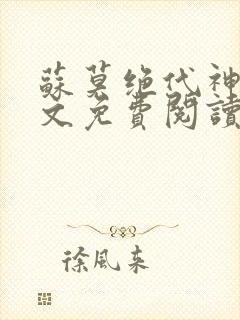 蘇莫绝代神
文免費閱讀
徐風来